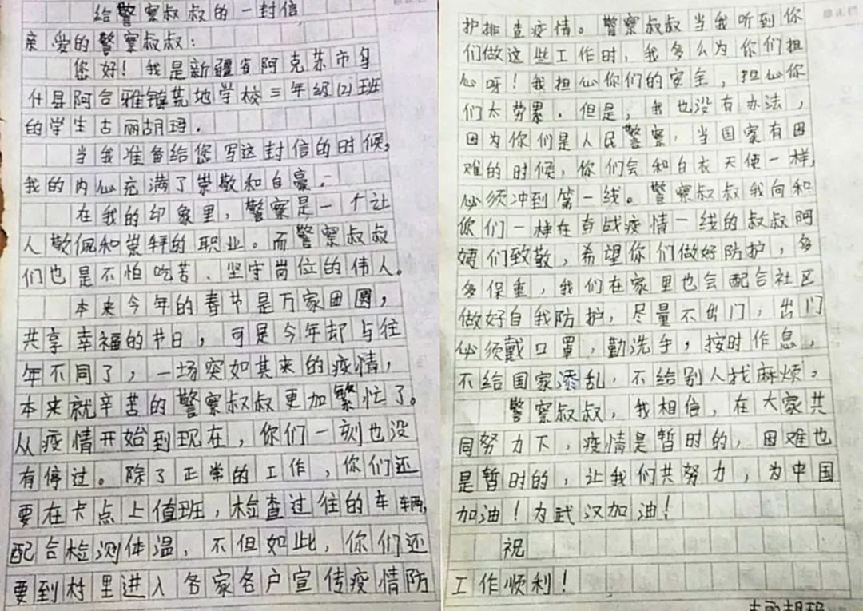 给警察叔叔的一封信
亲爱的警察叔叔:
您好!我是新疆省阿克苏市乌
什县阿合雅镇荒地学校三年级(2)班
的学生古丽胡玛.
当我准备给您写这封信的时候,
我的内心充满了崇敬和自豪.
在我的印象里,警察是一个让
人敬佩和崇拜的职业。而警察叔叔
们也是不怕吃苦、坚守岗位的伟人。
本来今年的春节是万家团圆,
共享幸福的节日,可是今年却与往
年不同了,一场突如其来的疫情,
本来就辛苦的警察叔叔更加繁忙了。
从疫情开始到现在,你们一刻也没
有停过。除了正常的工作,你们还
要在卡点上值班,检查过往的车辆,
配合检测体温,不但如此,你们还
要到村里进入各家各户宣传疫情防
护排查疫情。警察叔叔当我听到你
们做这些工作时,我多么为你们担
心呀!我担心你们的安全,担心你
们太劳累.但是,我也没有办法,
因为你们是人民警察.当国家有困
难的时候,你们会和白衣天使一样,
必须冲到第一线。警察叔叔我向和
你们一样在奋战疫情一线的叔叔阿
姨们致敬,希望你们做好防护,多
多保重,我们在家里也会配合社区
做好自我防护,尽量不出门,出门
必须戴口罩,勤洗手,按时作息,
不给国家添乱,不给别人找麻烦,
警察叔叔,我相信,在大家共
同努力下,疫情是暂时的,困难也
是暂时的,让我们共努力,为中国
加油!为武汉加油!
祝
工作顺利!